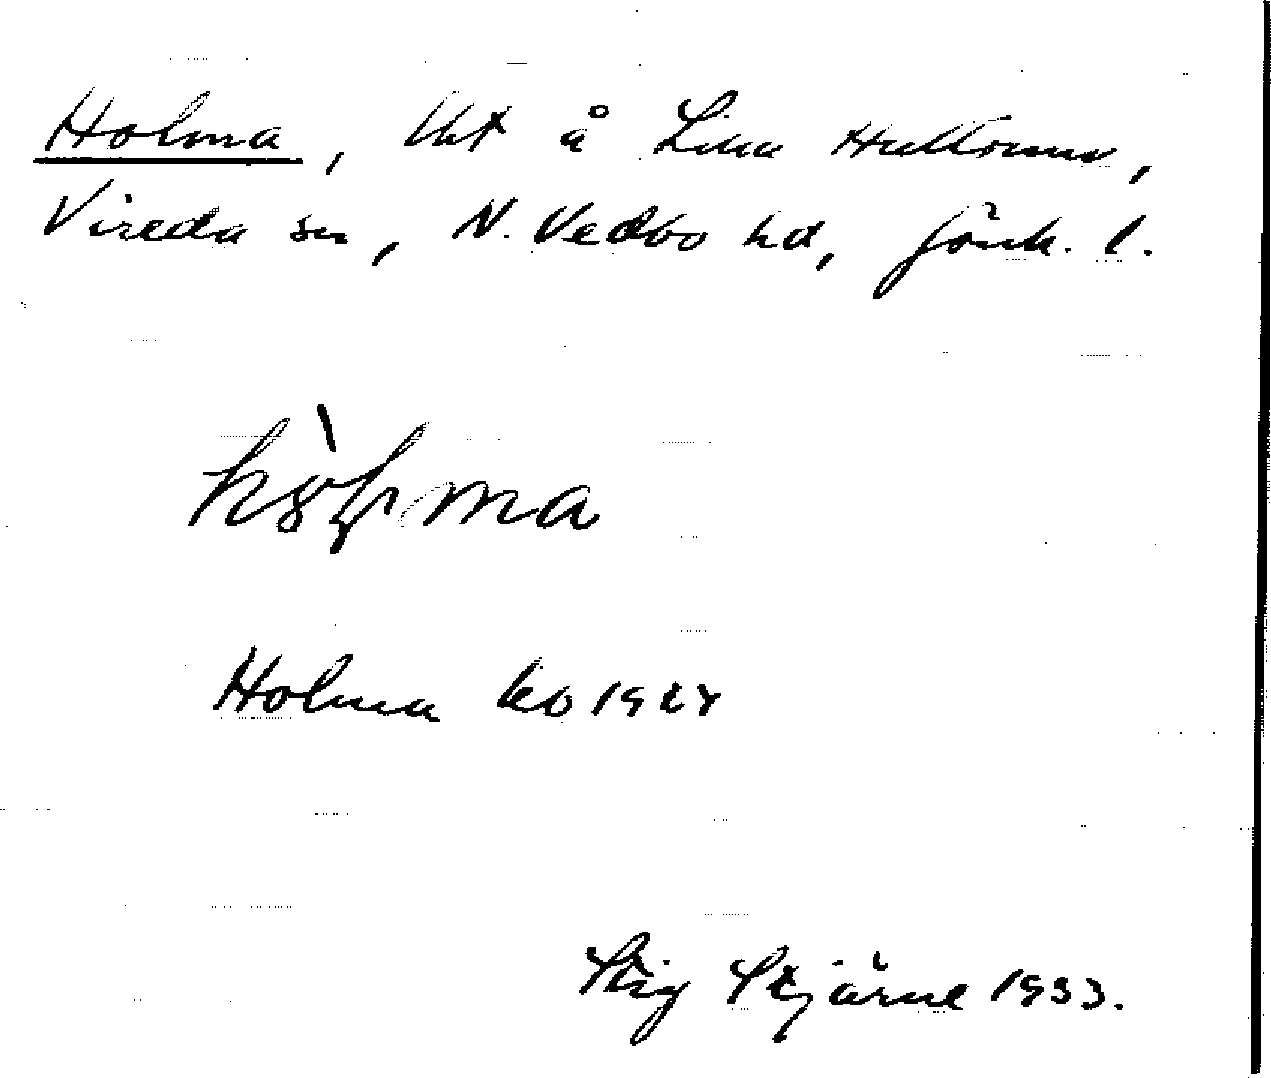 Holma, lht å Lilla Hultrum,
Vireda sn, N. Vedbo hd, Jönk. l.
Holma ko 1927
Stig Stjärne 1933.